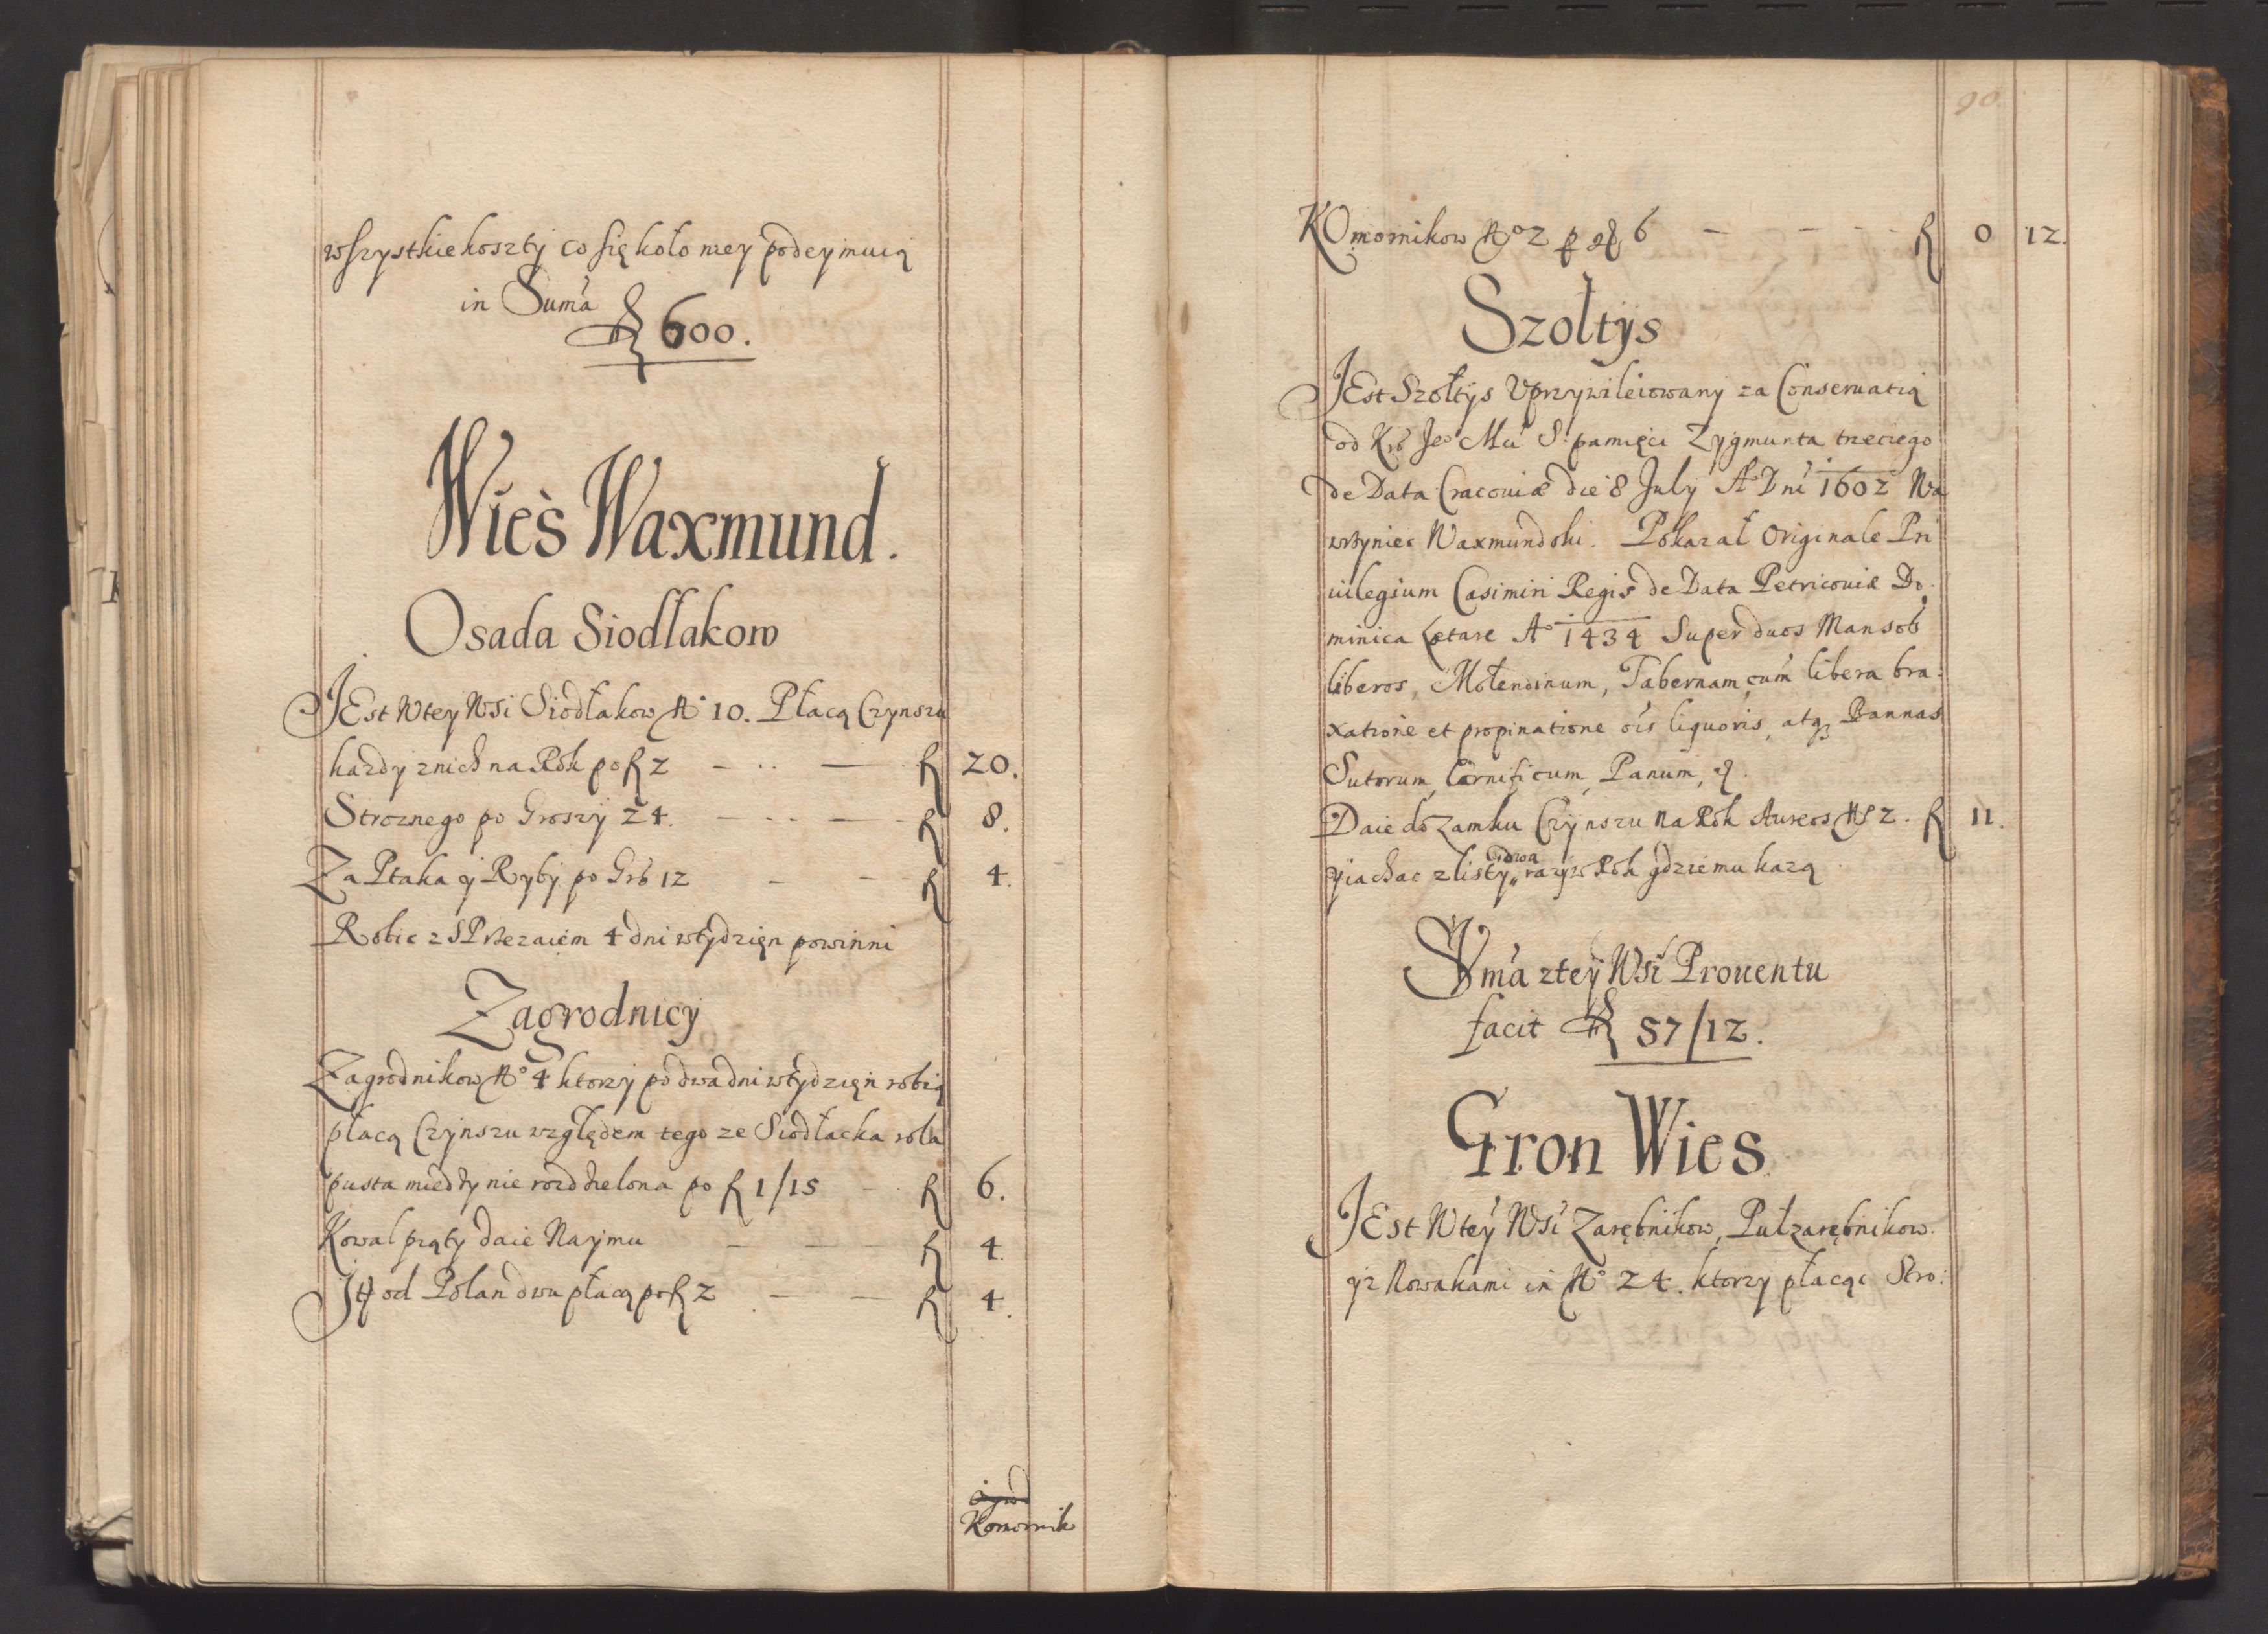 wszystkie koszty co się koło niey podeymuią
in Suma
fl 600.
Wieś Waxmund.
Osada Siodłakow
JEst Wtey Wsi Siodłakow No 10. Płacą Czynszu
każdy znich na Rok po fl 2 — fl 20.
Stroznego po Groszy 24. — fl 8.
Za Ptaka y Ryby po Grś 12 — fl 4.
Robic z SPrzezaiem 4 dni wtydzięn powinni
Zagrodnicy
Zagrodnikow No 4 ktorzy po dwa dni wtydzięn robią
płacą Czynszu względem tego ze Siodłacka rola
pusta miedzy nie rozdzielona po fl 1/15 — fl 6.
Kowal piąty daie Najmu — fl 4.
Jtt od Polan dwu płacą po fl 2 — fl 4.
Komornik
90
KOmornikow No 2 p gr 6 — fl 0 12.
Szołtys
JEst Szołtys Uprzywileiowany za Conseruatią
od Krś Jeo Mći S. pamięci Zygmunta trzeciego
de Data Cracouiæ die 8 July Ao Dni 1602 Wa
wrzyniec Waxmundski. Pokazał Originale Pri
uilegium Casimiri Regis de Data Petricouiæ Do:
minica Lætare Ao 1434 Super duos Mansos
liberos, Molendinum, Tabernam cum libera bra:
xatione et propinatione ois liquoris, atq Bannas
Sutorum, Carnificum, Panum, &.
Daie do Zamku Czynszu na Rok Aureos No 2. fl 11.
yiachac z listy dwa razy w Rok gdzie mu kazą
Sma ztey Wsi Prouentu
facit fl 57/12.
Gron Wies
JEst Wtey Wsi Zarębnikow, Pułzarębnikow.
yz Nowakami in No 24. ktorzy płacąc Stro: